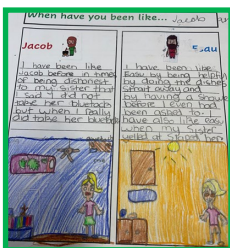 When have you been like... Jacob
Jacob
I have been like
Jacob before in times
of being dishonest
to my sister that
I sad I did not
take her bluetooth
when I really
did take her
Esau
I have been like
Esau by being helpful
by doing the dishes
straight away and
by having a shower
before I even had
been asked to. I
have also like Esau
when my sister